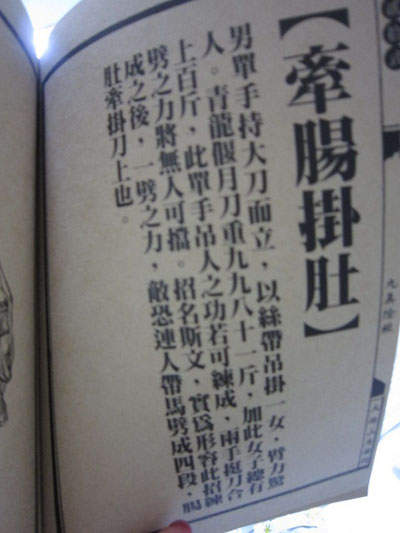 【牽腸掛肚】
男單手持大刀而立，以絲帶吊掛一女，臂力驚
人。青龍偃月刀重九九八十一斤，加此女子總有
上百斤，此單手吊人之功若可練成，兩手挺刀合
劈之力將無人可擋。招名斯文，實爲形容此招練
成之後，一劈之力，敵恐連人帶馬劈成四段，腸
肚牽掛刀上也。